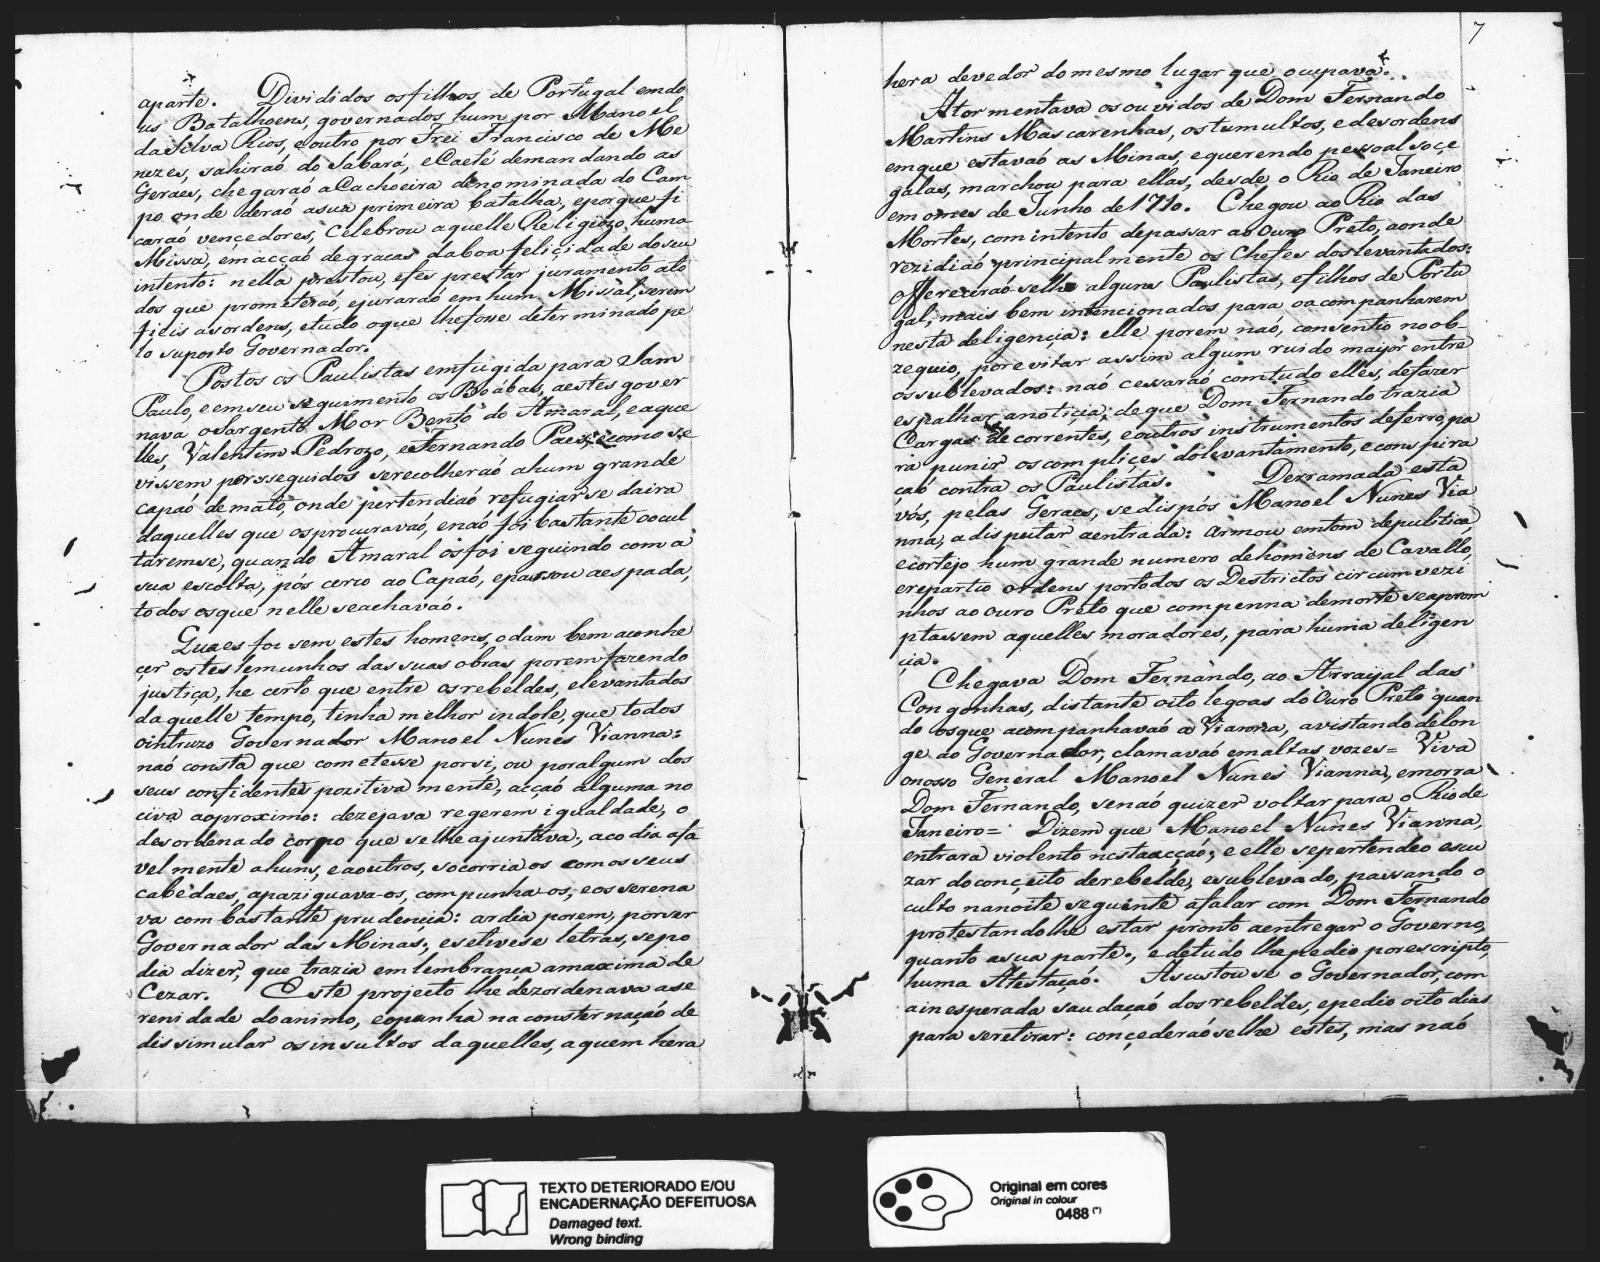 aparte. Divididos osfilhos de Portugal emdo
us Batalhoens, governados hum por Manoel
daSilva Rios, eoutro por Frei Francisco de Me
nezes, sahiraó do Sabará, eCaeté demandando as
Geraes, chegaraó aCachoeira denominada do Cam
po onde deraó asua primeira batalha, eporque fi
caraó vençedores, Celebrou aquelle Religiozo huma
Missa, emacçaó degracas daboa feliçidade doseu
intento: nella prestou, efes prestar juramento ato
dos que prometeraó, ejuraraó emhum Missal, serem
fieis asordens, etudo oque lhefosse determinado pe
lo suposto Governador.
Postos os Paulistas emfugida para Sam
Paulo, eemseu seguimento os Boabas, aestes gover
nava oSargento Mor Bento do Amaral, eaque
lles, Valentim Pedrozo, eFernando Paes; ecomo se
vissem persseguidos serecolheraó ahum grande
capaó demato, onde pertendiaó refugiarse daira
daquelles que osprocuravaó, enaó foi bastante oocul
taremse, quando Amaral osfoi seguindo com a
sua escolta, pós cerco ao Capaó, epassou aespada,
todos osque nelle seachavaó.
Quaes fossem estes homens, odam bem aconhe
çer ostestemunhos dassuas obras porem fazendo
justiça, he certo que entre osrebeldes, elevantados
daquelle tempo, tinha melhor indole, que todos
ointruzo Governador Manoel Nunes Vianna:
naó consta que cometesse porsi, ou poralgum dos
seus confidentes pozitivamente, acçaó alguma no
civa aoproximo: dezejava regerem igualdade, o
desordenado corpo que selheajuntava; acodia afa
velmente ahuns, eaoutros, socorria os comosseus
cabedaes, apaziguava-os, compunha-os, eosserena
va com bastante prudençia: ardia porem, porser
Governador das Minas; esetivese letras, sepo
dia dizer, que trazia emlembrança amaxima de
Cezar. Este projecto lhe dezordenava ase
renidade doanimo, eopunha naconsternaçaó de
dissimular osinsultos daquelles, aquem hera
7
hera devedor domesmo lugar que ocupava.
Atormentava osouvidos de Dom Fernando
Martins Mascarenhas, ostumultos, edesordens
emque estavaó as Minas, equerendo pessoalsoçe
galas, marchou para ellas, desde o Rio de Janeiro
em omes de Junho de 1710. Chegou ao Rio das
Mortes, comintento depassar ao Ouro Preto, aonde
rezidiaó principalmente os Chefes doslevantados:
offereciraó-selhe alguns Paulistas, efilhos de Portu
gal, mais bem intencionados para oacompanharem
nesta deligençia: elle porem naó, consentio noob-
zequio, porevitar assim algum ruido mayor entre
ossublevados: naó cessaraó comtudo elles, defazer
espalhar anotiçia; deque Dom Fernando trazia
Cargas de correntes, eoutros instrumentos deferro, pa
ra punir oscompliçes dolevantamento, econspira
çaó contra os Paulistas. Derramada esta
vós, pelas Geraes, sedispós Manoel Nunes Via
nna, adisputar aentrada: armou emtom depulitica,
ecortejo hum grande numero dehomens de Cavallo,
erepartio ordens portodos os Destrictos circumvezi
nhos ao Ouro Preto que compenna demorte seaprom
ptassem aquelles moradores, para huma deligen
çia.
Chegava Dom Fernando, ao Arrayal das
Congonhas, distante oito legoas do Ouro Preto quan
do osque acompanhavaó a Vianna, avistando delon
ge ao Governador, clamavaó emaltas vozes= Viva
onosso General Manoel Nunes Vianna, emorra
Dom Fernando, senaó quizer voltar para o Rio de
Janeiro= Dizem que Manoel Nunes Vianna,
entrara violento nestaacçaó; e elle sepertendeo escu
zar doconçeito derebelde, esublevado, passando o
culto nanoite seguinte afalar com Dom Fernando
protestandolhe estar pronto aentregar o Governo,
quanto asua parte., edetudo lhepedio porescripto,
huma Atestaçaó. Asustouse o Governador, com
ainesperada saudaçaó dosrebeldes, epedio oito dias
para seretirar: conçederaóselhe estes, mas naó
TEXTO DETERIORADO E/OU
ENCADERNAÇÃO DEFEITUOSA
Damaged text.
Wrong binding
Original em cores
Original in colour
0488 (*)